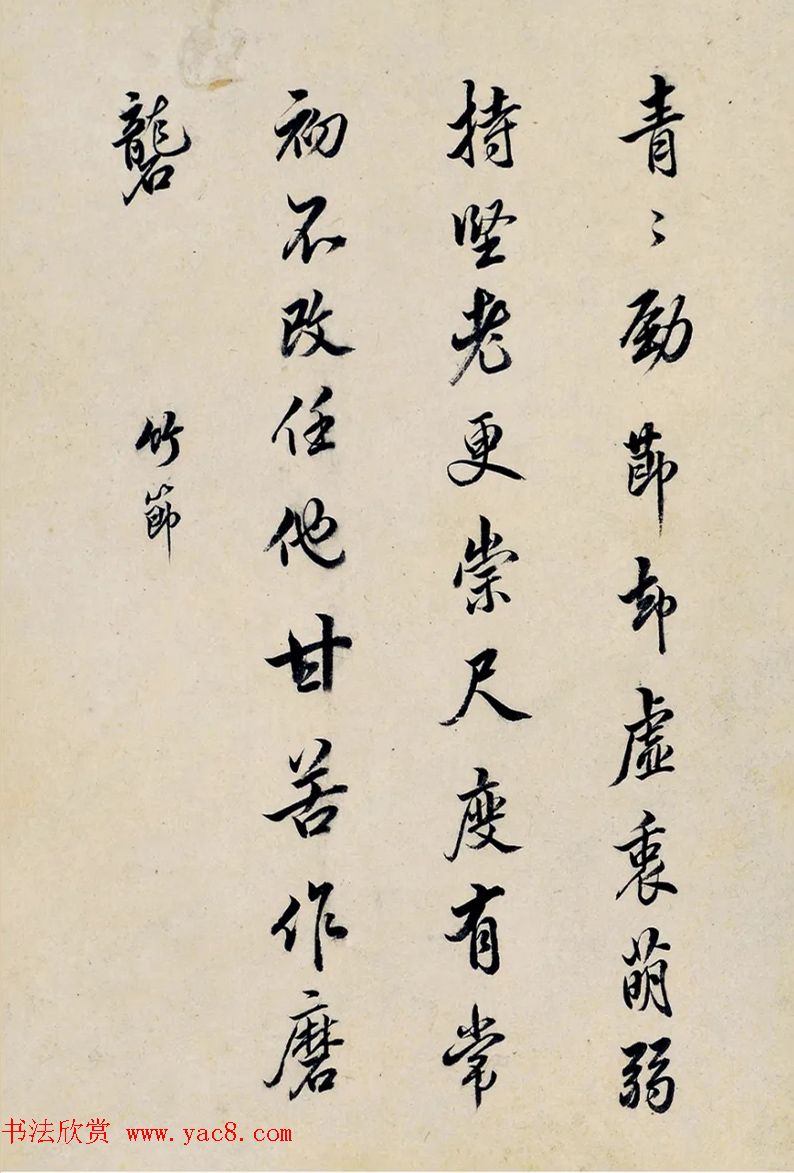 青〻勁節却虛衷萌弱
持堅老更崇尺度有常
初不改任他甘苦作磨
礱
竹節
书法欣赏 www.yac8.com